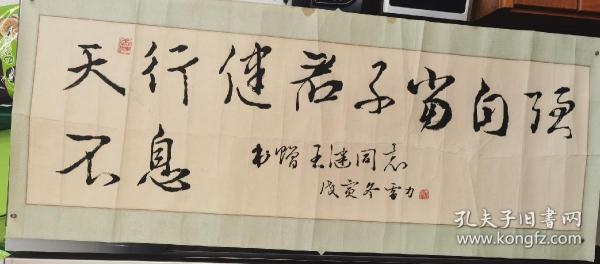 天行健君子当自强
不息
书赠王建同志
戊寅冬雪力
孔夫子旧书网
www.kongfz.com